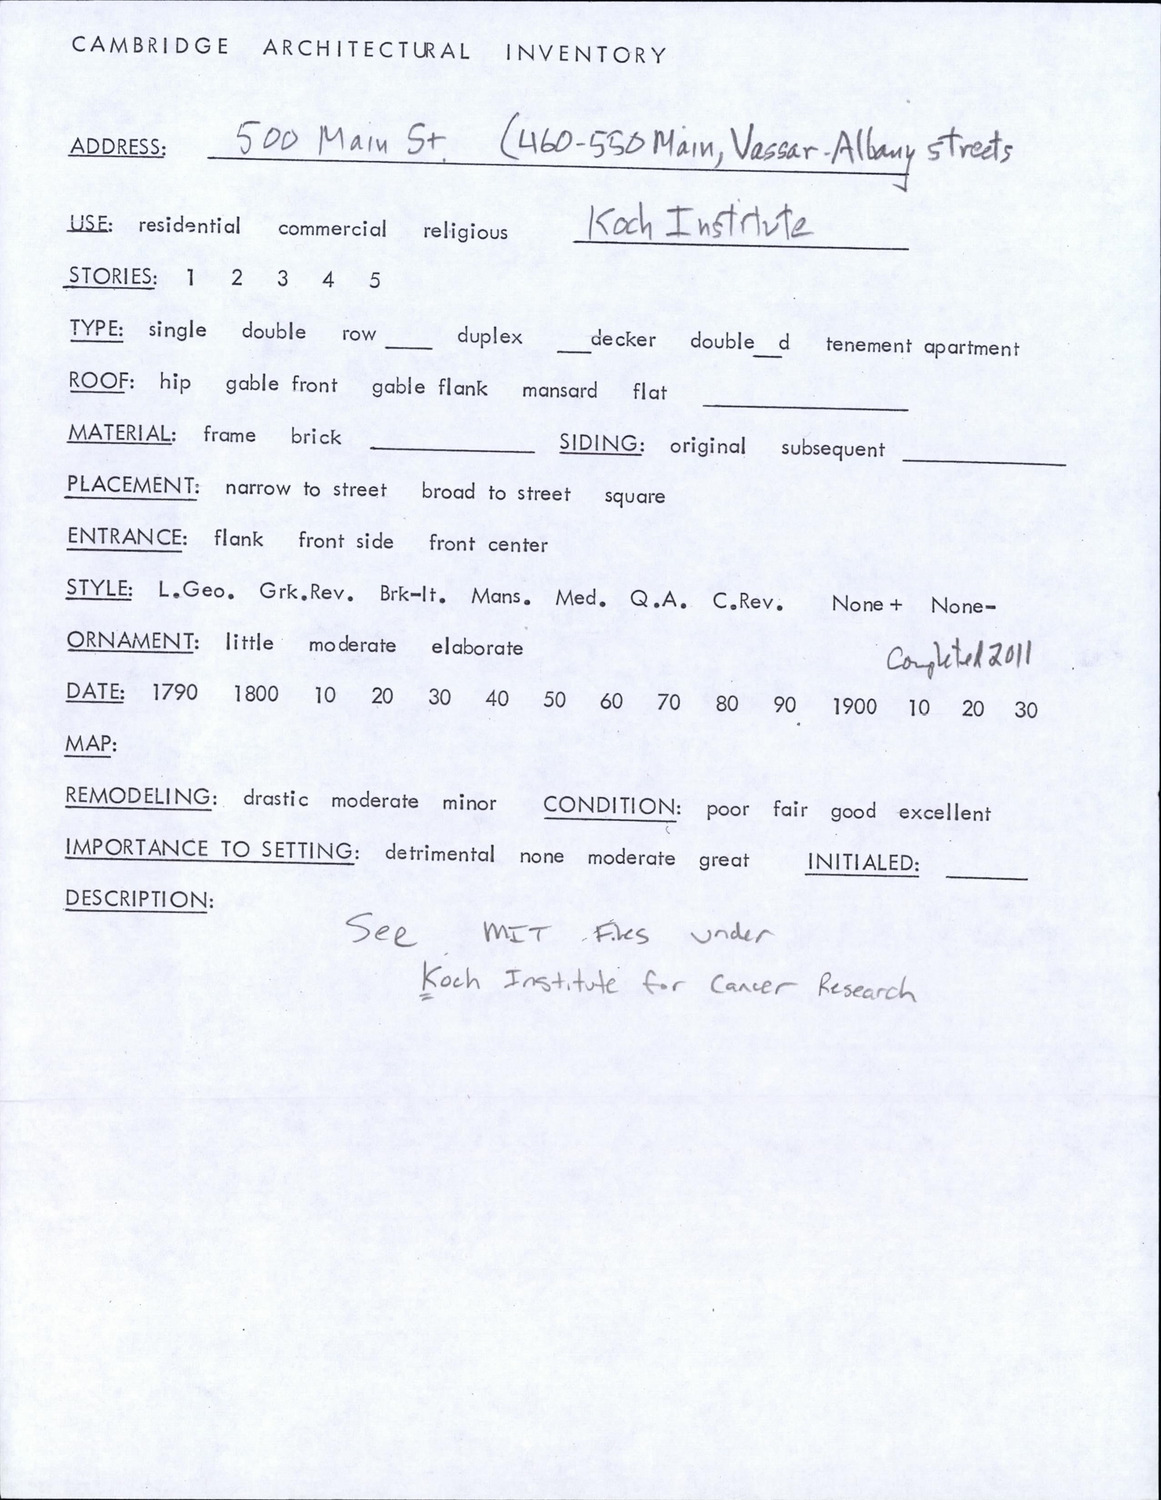 CAMBRIDGE ARCHITECTURAL INVENTORY
ADDRESS: 500 Main St. (460-550 Main, Vassar-Albany streets
USE: residential commercial religious Koch Institute
STORIES: 1 2 3 4 5
TYPE: single double row ____ duplex ___decker double__d tenement apartment
ROOF: hip gable front gable flank mansard flat ____
MATERIAL: frame brick ____ SIDING: original subsequent ____
PLACEMENT: narrow to street broad to street square
ENTRANCE: flank front side front center
STYLE: L.Geo. Grk.Rev. Brk-It. Mans. Med. Q.A. C.Rev. None+ None-
ORNAMENT: little moderate elaborate Completed 2011
DATE: 1790 1800 10 20 30 40 50 60 70 80 90 1900 10 20 30
MAP:
REMODELING: drastic moderate minor CONDITION: poor fair good excellent
IMPORTANCE TO SETTING: detrimental none moderate great INITIALED: ____
DESCRIPTION:
See MIT Files under
Koch Institute for Cancer Research